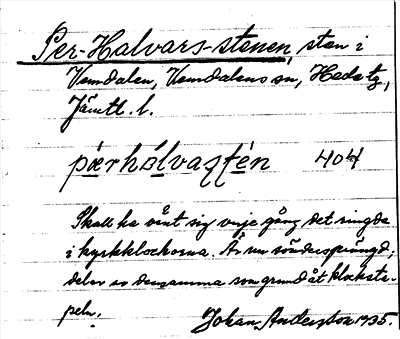 Per-Halvars-stenen, sten i
Vemdalen, Vemdalens sn, Hede tg,
Jämtl. l.
pärhálvastén 40 H
Skall ha vänt sig varje gång det ringde
i kyrkklockorna. Är nu söndersprängd;
delar av densamma som grund åt klocksta-
peln.
Johan Andersson 1935.